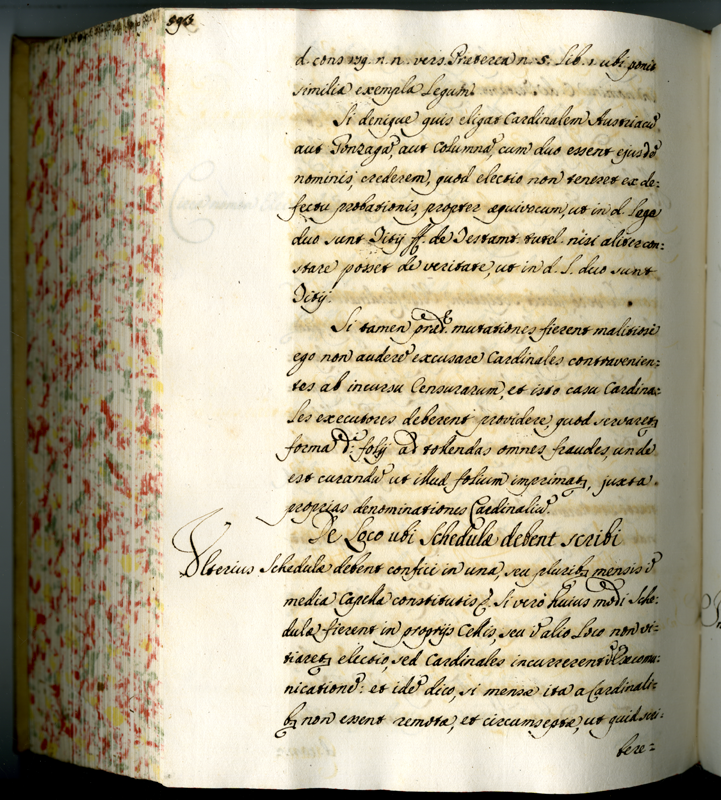 593
d. cons 179. n. n. vers. Præterea n. 5. Lib. 1. ubi ponit
similia exempla Legum.
Si denique quis eligat Cardinalem Austriacũ
aut Gonzagã, aut Columnã, cum duo essent ejusdẽ
nominis, crederem, quod electio non teneret ex de=
fectu probationis, propter æquivocum, ut in d. Lege
duo sunt Titij ff. de Testamt. tutel. nisi aliter con=
stare posset de veritate, ut in d. L. duo sunt
Titij.
Si tamen præd. mutationes fierent malitiosè
ego non auderẽ excusare Cardinales contravenien=
tes ab incursu Censurarum, et isto casu Cardina=
les executores deberent providere, quod servaret
forma d. folij ad tollendas omnes fraudes, unde
est curandũ ut illud folium imprimat, juxta
proprias denominationes Cardinaliũ.
De Loco ubi Schedulæ debent scribi
Ulterius Schedulæ debent confici in una, seu plurib. mensis ĩ
media Capella constitutis. Si verò huius modi Sche=
dulæ fierent in proprijs Cellis, seu ĩ alio Loco non vi=
tiaret electio, sed Cardinales incurrerent Excomu=
nicationẽ: et ideò dico, si mensæ ita a Cardinali=
b. non essent remotæ, et circumseptæ, ut quid scri=
bere=